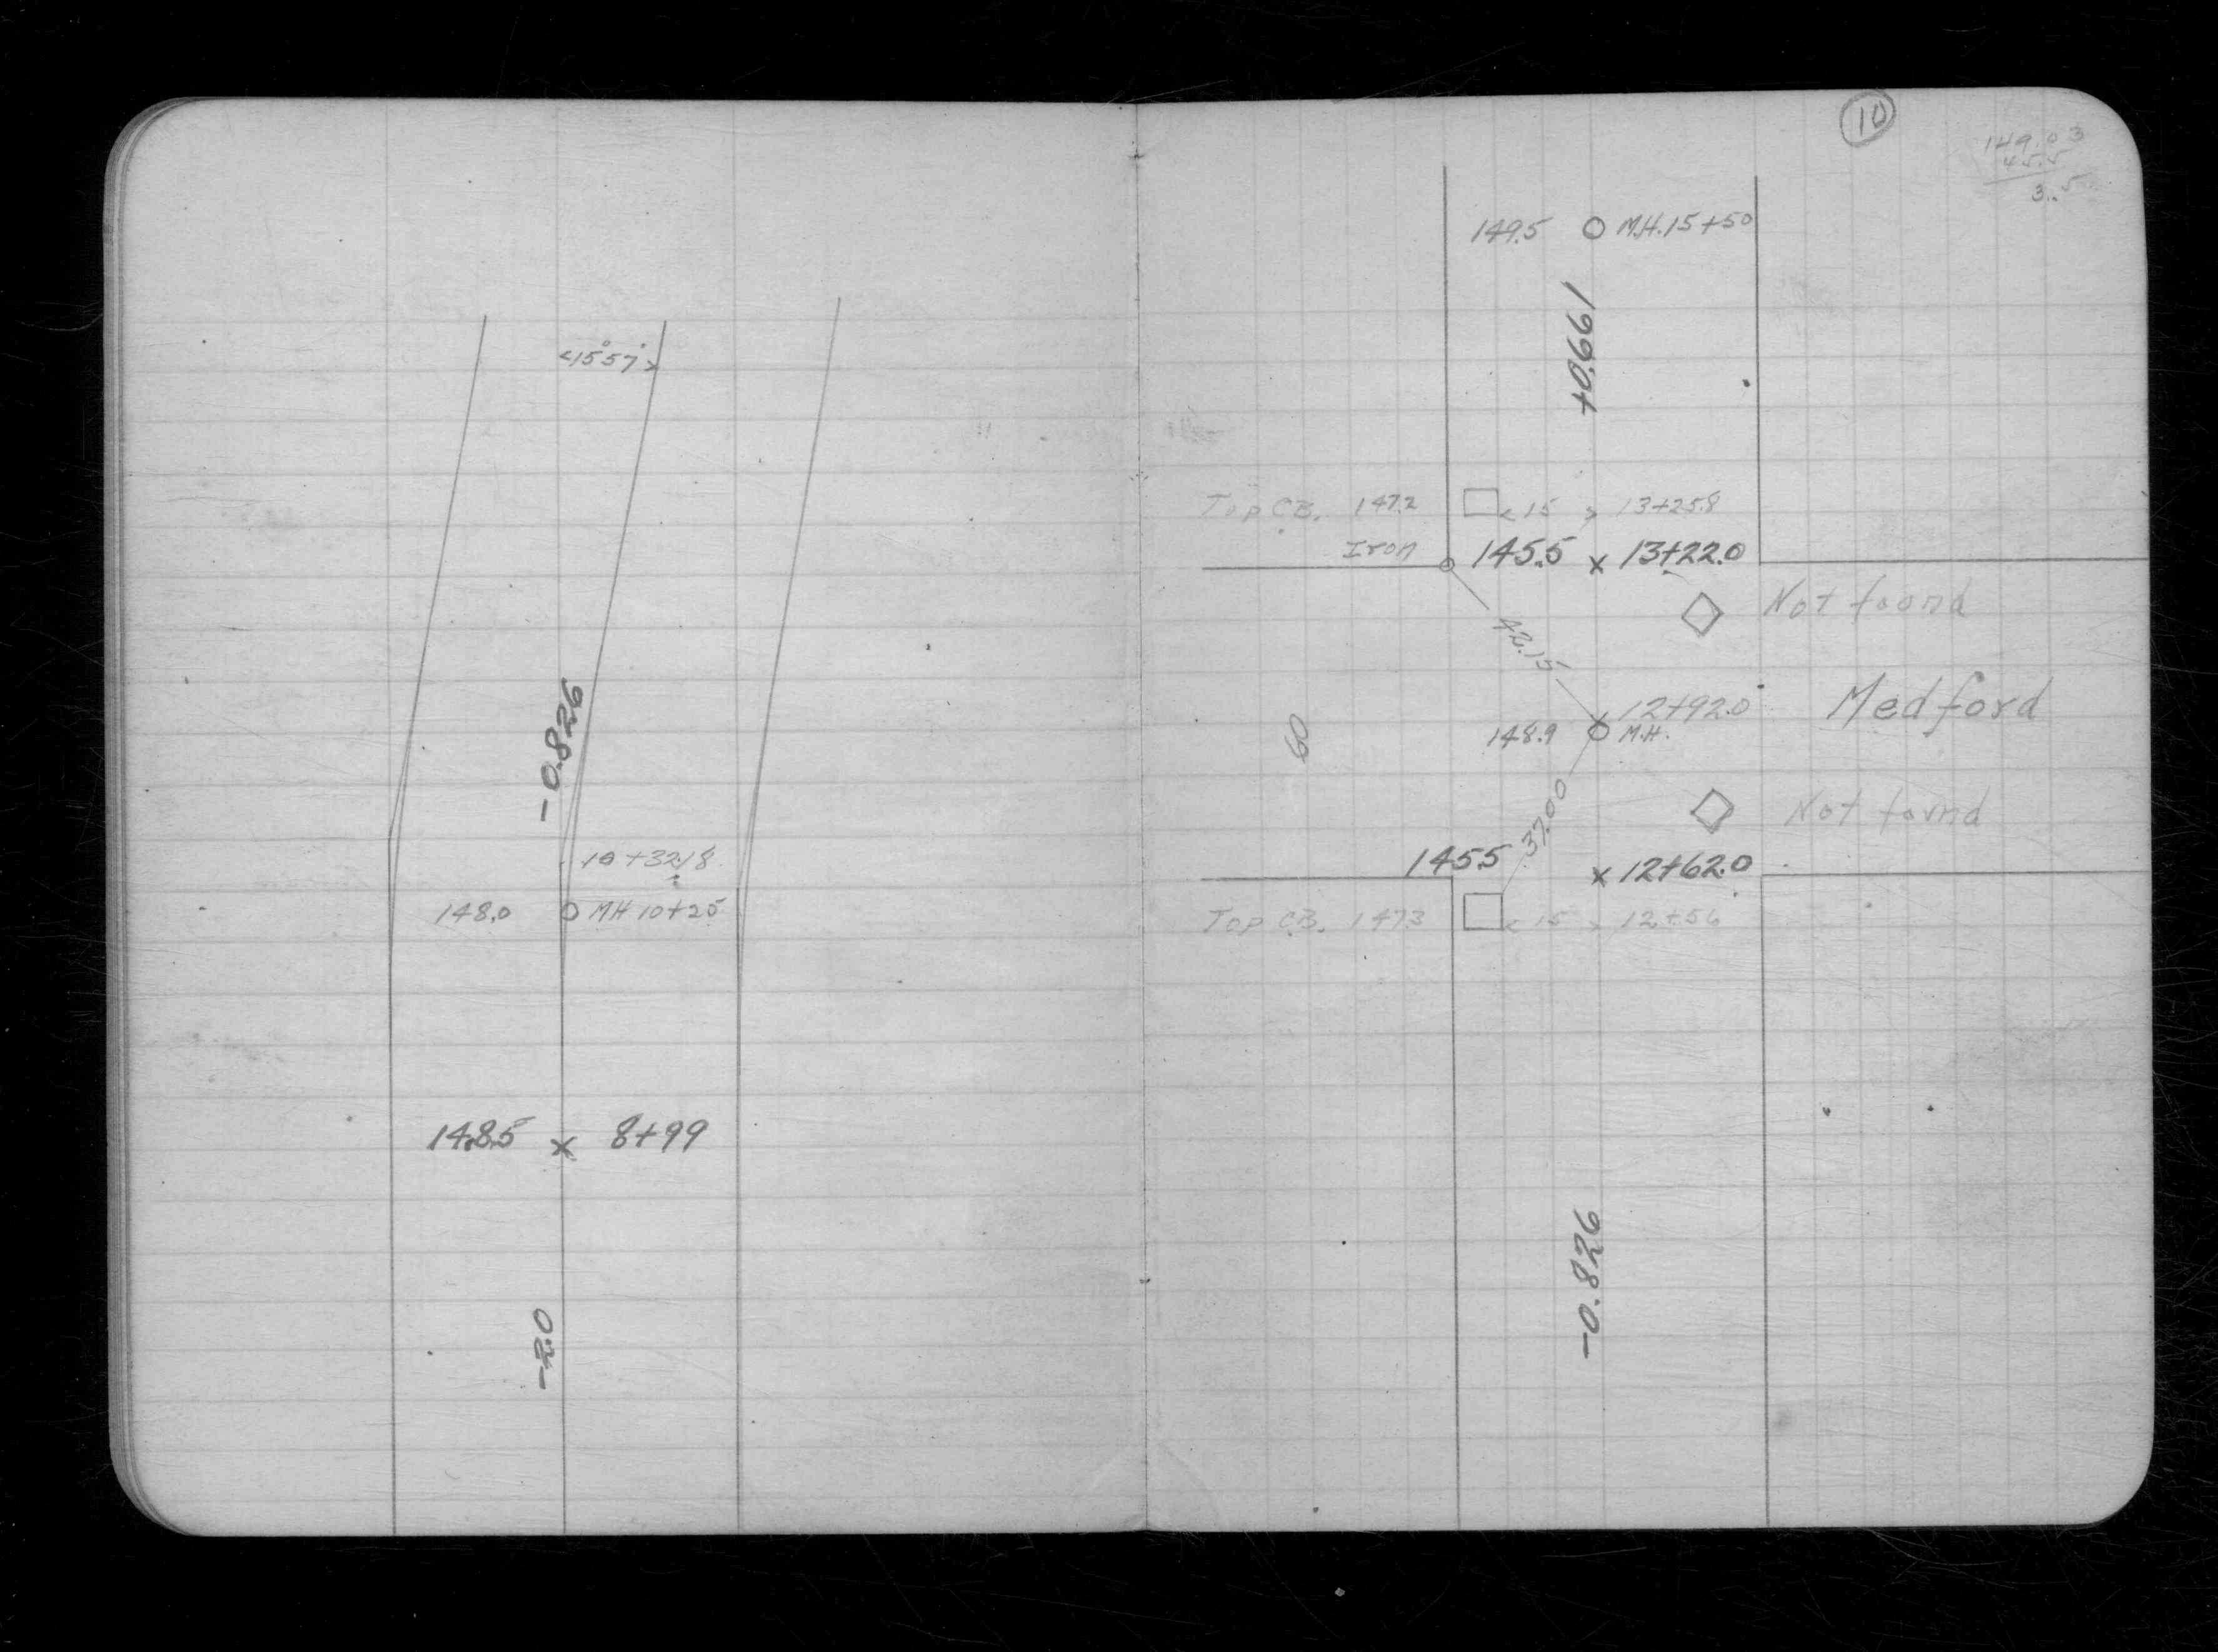 <15°57'>
-0.826
10+32.18
148.0 MH 10+25
148.5 x 8+99
-2.0
10
149.03
45.5
3.5
149.5 M.H. 15+50
+0.661
Top C.B. 147.2 <15> 13+25.8
Iron 145.5 x 13+22.0
Not found
42.15
12+92.0
Medford
60
148.9 M.H.
37.00
Not found
145.5 x 12+62.0
Top C.B. 147.3 <15> 12+56
-0.826